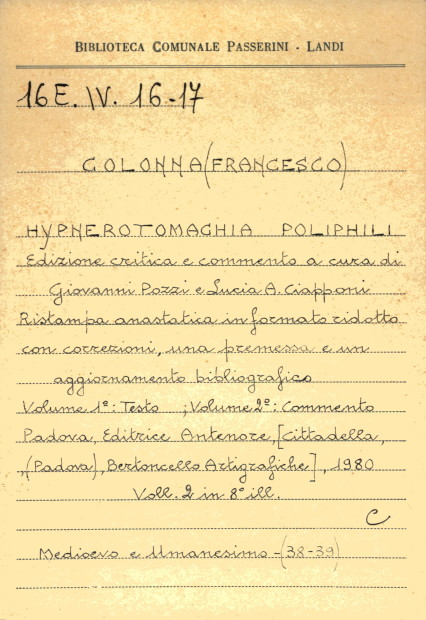 BIBLIOTECA COMUNALE PASSERINI - LANDI
16 E. IV. 16-17
COLONNA (FRANCESCO)
HYPNEROTOMACHIA POLIPHILI
Edizione critica e commento a cura di
Giovanni Pozzi e Lucia A. Ciapponi
Ristampa anastatica in formato ridotto
con correzioni, una premessa e un
aggiornamento bibliografico
Volume 1º: Testo ; Volume 2º: Commento
Padova, Editrice Antenore, [Cittadella,
(Padova), Bertoncello Artigrafiche], 1980
Voll. 2 in 8º ill.
C
Medioevo e Umanesimo - (38-39)